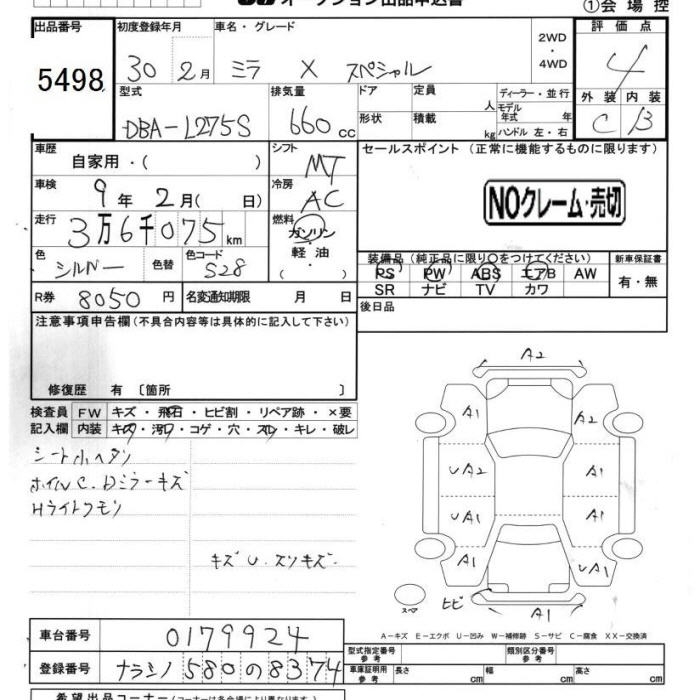 オークション出品申込書
①会場控
出品番号
5498
初度登録年月
30 2月
車名・グレード
ミラ X スペシャル
2WD
・
4WD
評価点
4
型式
DBA-L275S
排気量
660 cc
ドア
形状
定員
人
積載
kg
ディーラー・並行
モデル年式 年
ハンドル 左・右
外装 内装
C B
車歴
自家用・( )
シフト
MT
車検
9年 2月( 日)
冷房
AC
走行
3万6千075km
燃料
ガソリン
軽油
・( )
色
シルバー
色替
色コード
S28
R券
8050円
名変通知期限 月 日
セールスポイント (正常に機能するものに限ります)
NOクレーム・売切
装備品(純正品に限り○をつけてください)
PS PW ABS エアB AW
SR ナビ TV カワ
新車保証書
有・無
後日品
注意事項申告欄(不具合内容等は具体的に記入して下さい)
修復歴 有〔箇所 〕
検査員
記入欄
FW キズ・飛石・ヒビ割・リペア跡・×要
内装 キズ・汚レ・コゲ・穴・スレ・キレ・破レ
シート小ヘタリ
ホイルC.Dミラーキズ
Hライトクモリ
キズU.スリキズ.
A2
A1
A2
UA2
A1
UA1
A1
A1
UA1
スペア
ヒビ
A1
A-キズ E-エクボ U-凹み W-補修跡 S-サビ C-腐食 XX-交換済
車台番号
0179924
登録番号
ナラシノ 580 の 8374
型式指定番号
参考
類別区分番号
参考
車庫証明用
参考
長さ cm 幅 cm 高さ cm
希望出品コーナー